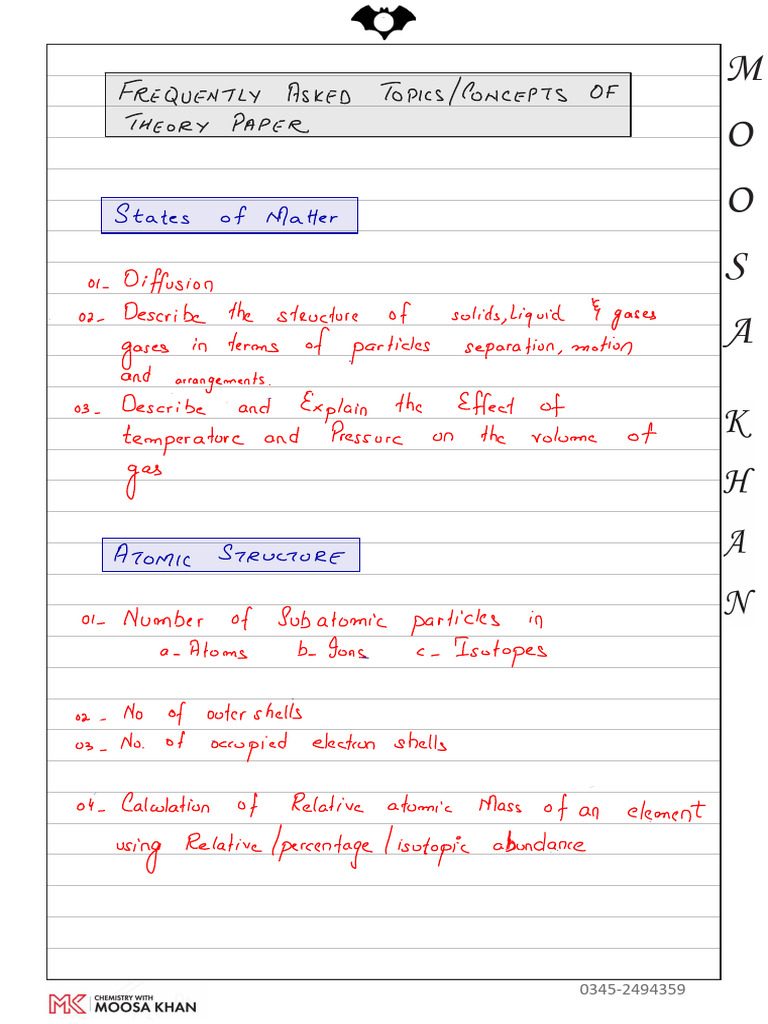 FREQUENTLY ASKED TOPICS/CONCEPTS OF
THEORY PAPER
States of Matter
01- Diffusion
02- Describe the structure of solids, Liquid & gases
gases in terms of particles separation, motion
and arrangements.
03- Describe and Explain the Effect of
temperature and Pressure on the volume of
gas
ATOMIC STRUCTURE
01- Number of Subatomic particles in
a- Atoms b- Ions c- Isotopes
02- No of outer shells
03- No. of occupied electron shells
04- Calculation of Relative atomic Mass of an element
using Relative/percentage/isotopic abundance
MOOSA KHAN
0345-2494359
MK CHEMISTRY WITH
MOOSA KHAN